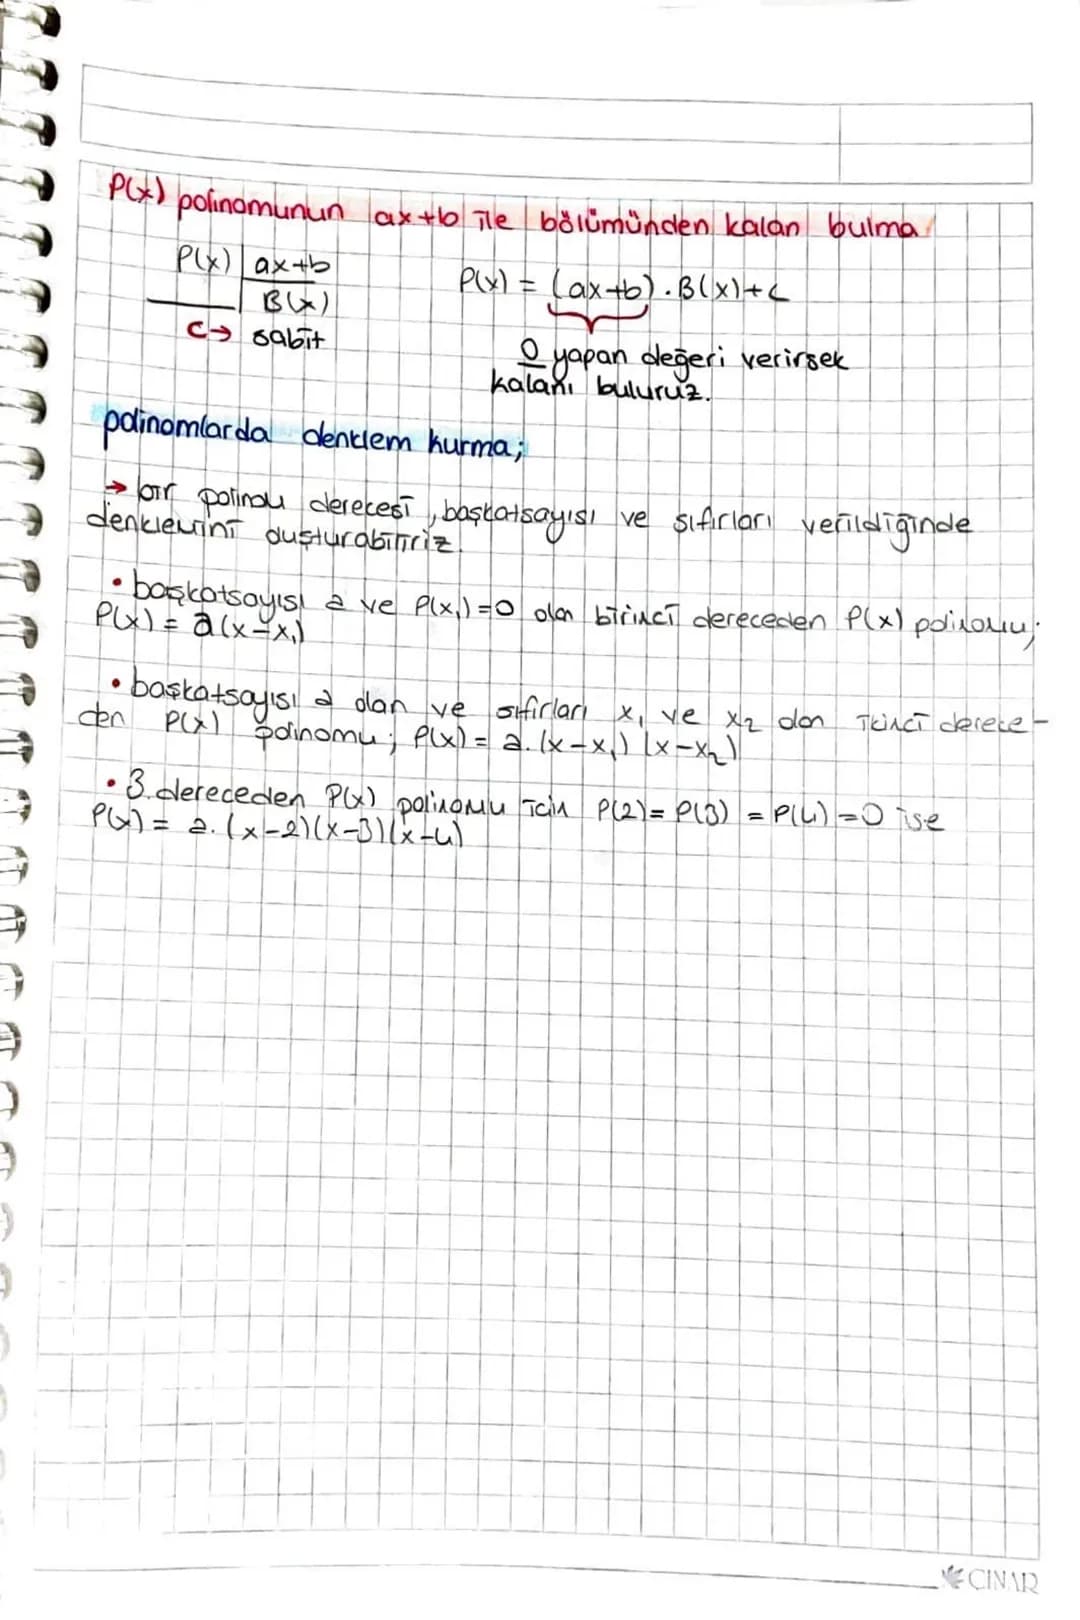 P(x) polinomunun ax+b ile bölümünden kalan bulma
P(x) | ax+b
B(x)
c→ sabit
P(x) = (ax+b).B(x)+c
0 yapan değeri verirsek
kalanı buluruz.
polinomlarda denklem kurma;
→ bir polinom derecesi, başkatsayısı ve sıfırları verildiğinde
denklemini oluşturabiliriz.
• başkatsayısı a ve P(x₁)=0 olan birinci dereceden P(x) polinomu;
P(x) = a(x-x₁)
• başkatsayısı a olan ve sıfırları x₁ ve x₂ olan ikinci derece-
den P(x) polinomu; P(x) = a.(x-x₁)(x-x₂)
• 3.dereceden P(x) polinomu için P(2)= P(3) = P(4)=0 ise
P(x) = a.(x-2)(x-3)(x-4)
ÇINAR